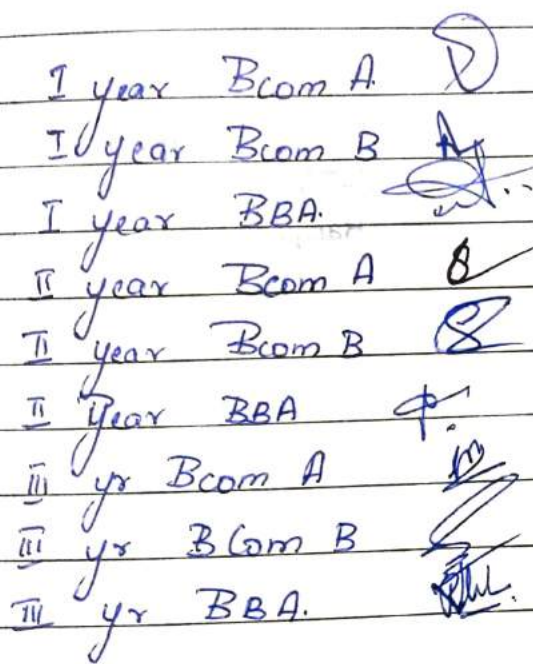 I year Bcom A
I year Bcom B
I year BBA.
II year Bcom A
II year Bcom B
II Year BBA
III yr Bcom A
III yr BCom B
III yr BBA.